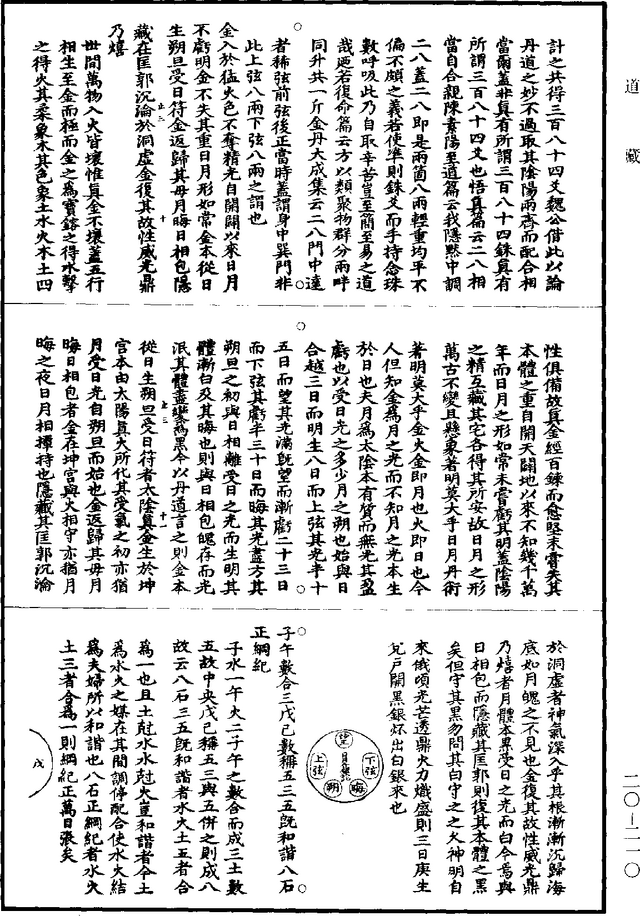 道藏
二〇—二一〇
計之共得三百八十四爻魏公借此以論
丹道之妙不過取其陰陽兩齊而配合相
當爾蓋非真有所謂三百八十四銖真有
所謂三百八十四爻也悟真篇云二八相
當自合親陳素陽至道篇云我隱黙中調
二八蓋二八即是兩箇八兩輕重均平不
偏不頗之義若使準則銖爻而手持念珠
數呼吸此乃自取辛苦豈至簡至易之道
哉迺若復命篇云方以類聚物群分兩畔
同升共一斤金丹大成集云二八門中達
者稀弦前弦後正當時蓋謂身中巽門非
此上弦八兩下弦八兩之謂也
金入於猛火色不奪精光自開闢以來日月
不虧明金不失其重日月形如常金本從日
生朔旦受日符金返歸其母月晦日相包隱
藏在匡郭沉淪於洞虛金復其故性威光鼎
乃熺
世間萬物入火皆壞惟真金不壞蓋五行
相生至金而極而金之為寶鎔之得水擊
之得火其柔象木其色象土水火木土四
性俱備故真金經百鍊而愈堅未嘗失其
本體之重自開天闢地以來不知幾千萬
年而日月之形如常未嘗虧其明蓋陰陽
之精互藏其宅各得其所安故日月之形
萬古不變且懸象著明莫大乎日月丹術
著明莫大乎金火金即月也火即日也今
人但知金為月之光而不知月之光本生
於日也夫月為太陰本有質而無光其盈
虧也以受日光之多少月之朔也始與日
合越三日而明生八日而上弦其光半十
五日而望其光滿既望而漸虧二十三日
而下弦其虧半三十日而晦其光盡方其
朔旦之初與日相離受日之光而生明其
體漸白及其晦也則與日相包魄存而光
泯其體盡變為黑今以丹道言之則金本
從日生朔旦受日符者太陰真金生於坤
宮本由太陽真火所化其受氣之初亦猶
月受日光自朔旦而始也金返歸其母月
晦日相包者金在坤宮與火相守亦猶月
晦之夜日月相撢持也隱藏其匡郭沉淪
於洞虛者神氣深入乎其根漸漸沉歸海
底如月魄之不見也金復其故性威光鼎
乃熺者月體本專受日之光而白今焉與
日相包而隱藏其匡郭則復其本體之黑
矣但守其黑勿問其白守之之久神明自
來俄頃光芒透鼎火力熾盛則三日庚生
兊戶開黑銀爐出白銀來也
望
下弦
晦
朔
上弦
子午數合三戊己數稱五三五既和諧八石
正綱紀
子水一午火二子午之數合而成三土數
五故中央戊己稱五三與五併之則成八
故云八石三五既和諧者水火土五者合
為一也且土尅水水尅火豈和諧者今土
為水火之媒在其間調停配合使水火結
為夫婦所以和諧也八石正綱紀者水火
土三者合為一則綱紀正萬目張矣
戊